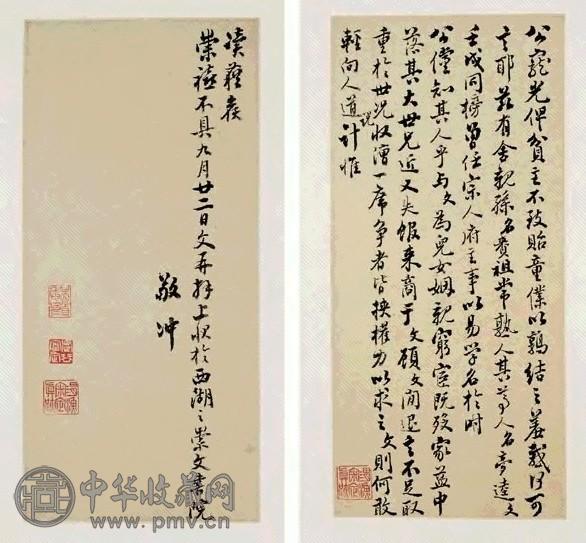 公寵光俾貧主不致貽童僕以鶉結之羞戴何可
言耶茲有舍親孫名賡祖常熟人其尊人名夢逵文
壬戌同榜曾任宗人府主事以易學名於時
公僅知其人乎與文為兒女姻親窮窘既歿家益中
落其大世兄近又失館來商于文顧文閒退言不足取
重於世況收漕一席爭者皆挾權力以求之文則何敢
輕向人道計惟
榮禧不具九月廿二日文再拜上狀於西湖之崇文書院
敬沖
中华收藏网
www.pmv.cn